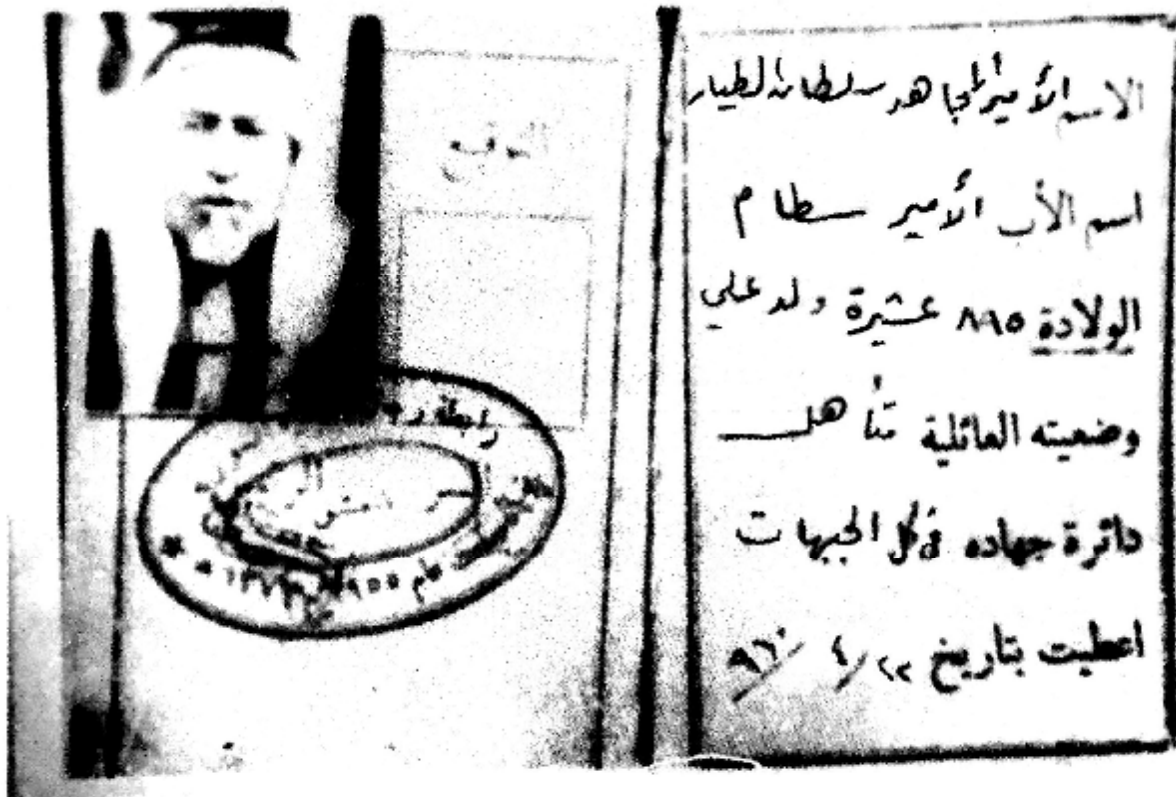 الاسم الأمير المجاهد سلطان الطيار
اسم الأب الأمير سطام
الولادة ٨٩٥ عشيرة ولد علي
وضعيته العائلية متأهل
دائرة جهاده في كل الجبهات
اعطيت بتاريخ ٢٢ / ٤ / ٩٦٠
التوقيع
رابطة
عام ١٩٥٥